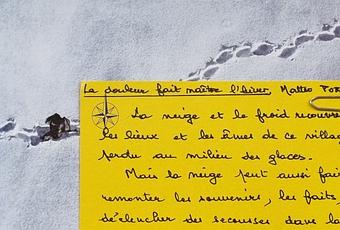 La douleur fait naître l'hiver, Matteo
La neige et le froid recouvre
les lieux et les âmes de ce villag
perdu au milieu des glaces.
Mais la neige peut aussi fai
remonter les souvenirs, les faits,
déclencher des secousses dans la